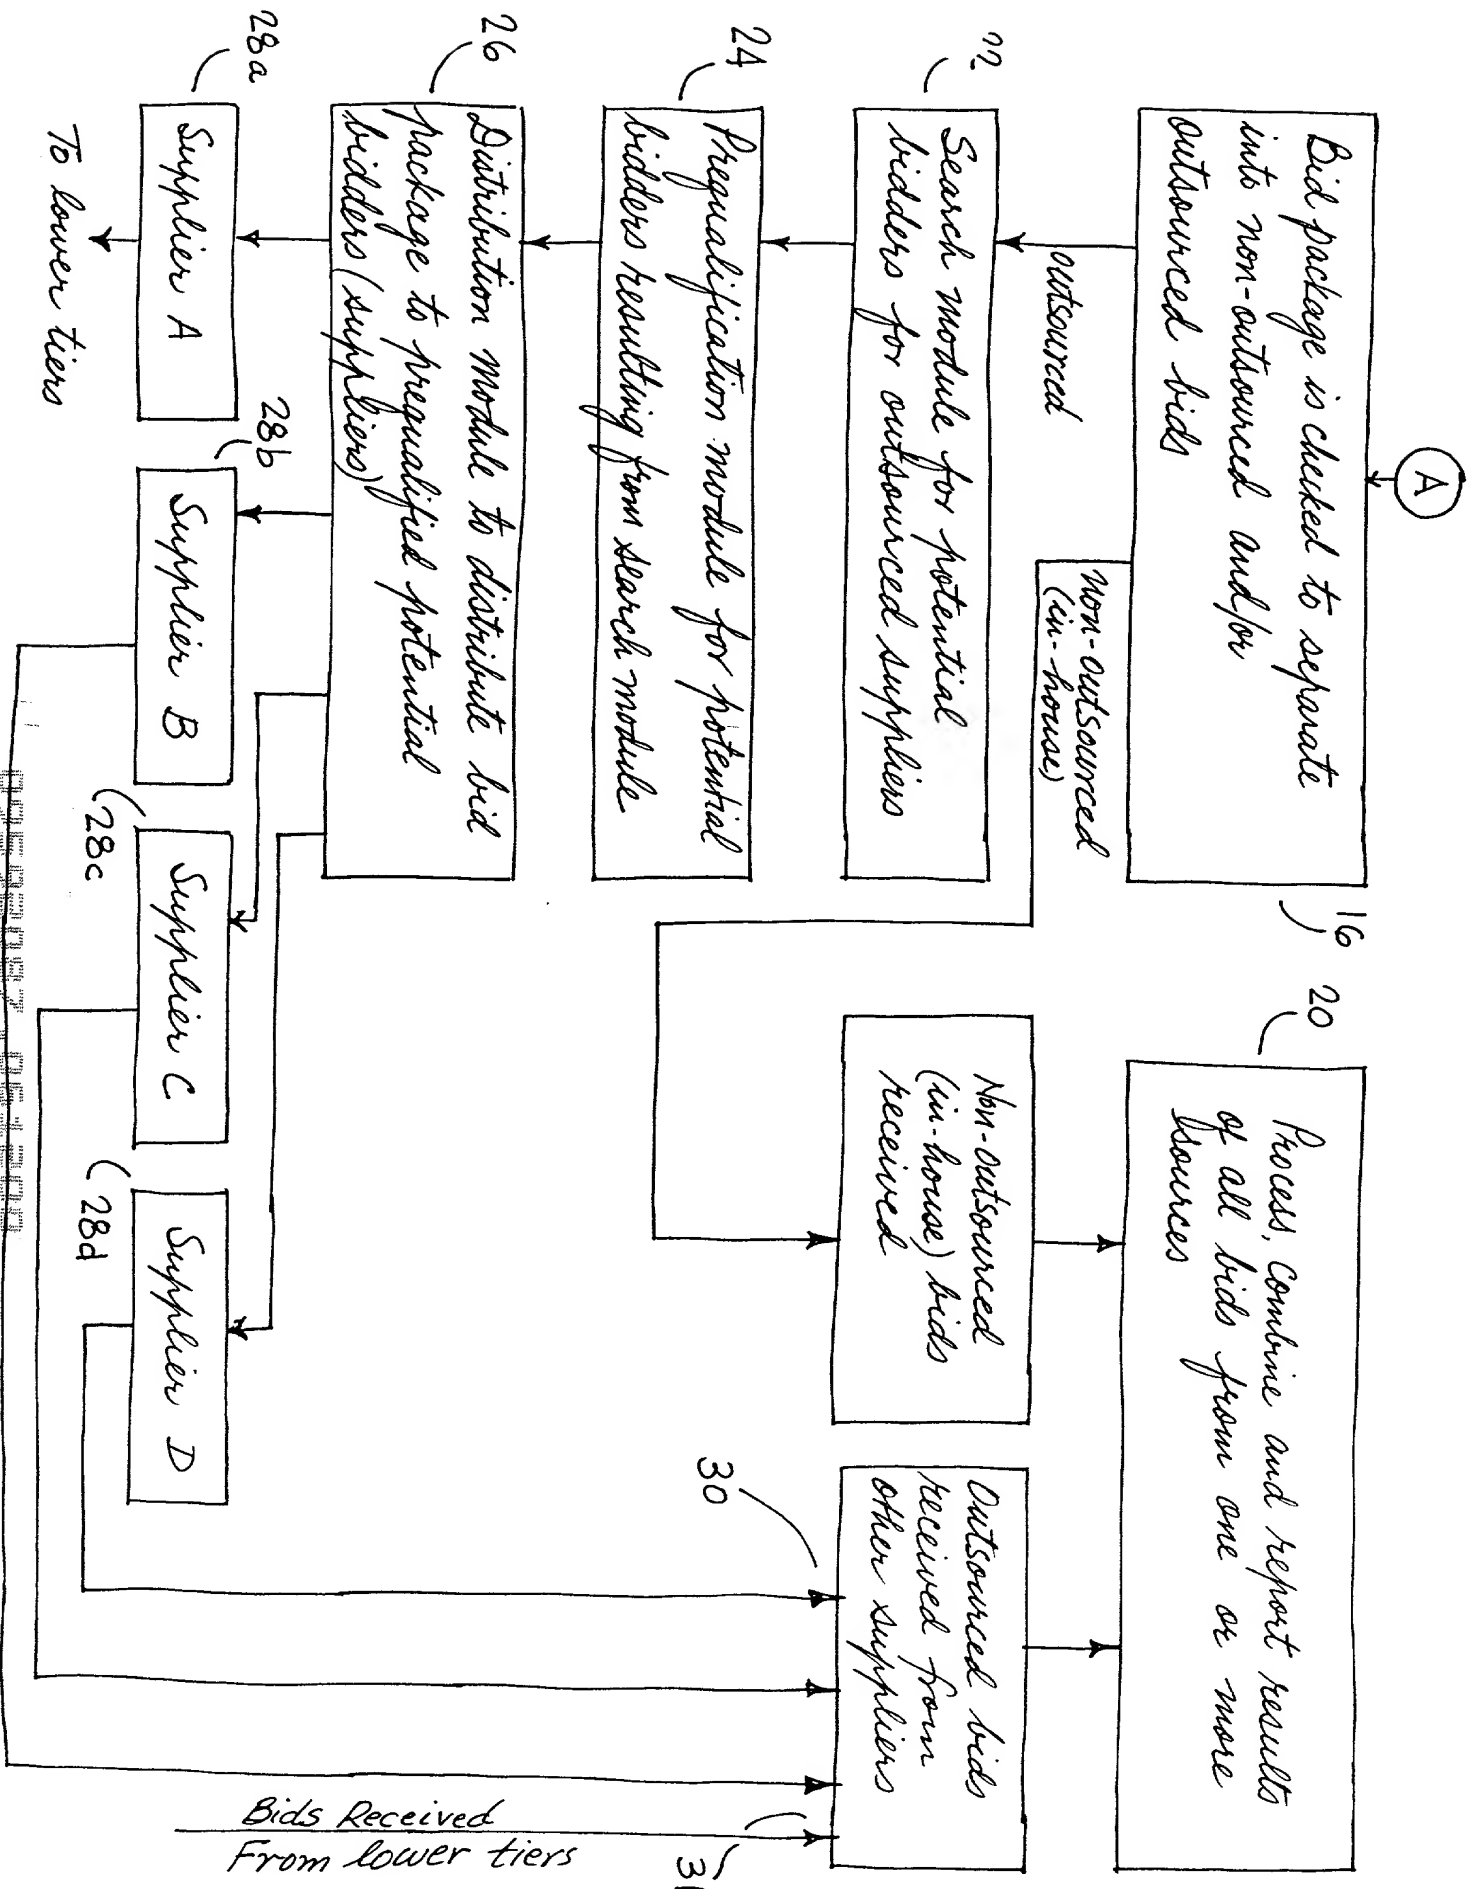 A
Bid package is checked to separate
into non-outsourced and/or
outsourced bids
16
outsourced
non-outsourced
(in-house)
22
Search module for potential
bidders for outsourced suppliers
24
Prequalification module for potential
bidders resulting from search module
26
Distribution module to distribute bid
package to prequalified potential
bidders (suppliers)
28a
Supplier A
To lower tiers
28b
Supplier B
28c
Supplier C
28d
Supplier D
20
Process, combine and report results
of all bids from one or more
sources
Non-outsourced
(in-house) bids
received
Outsourced bids
received from
other suppliers
30
Bids Received
From lower tiers